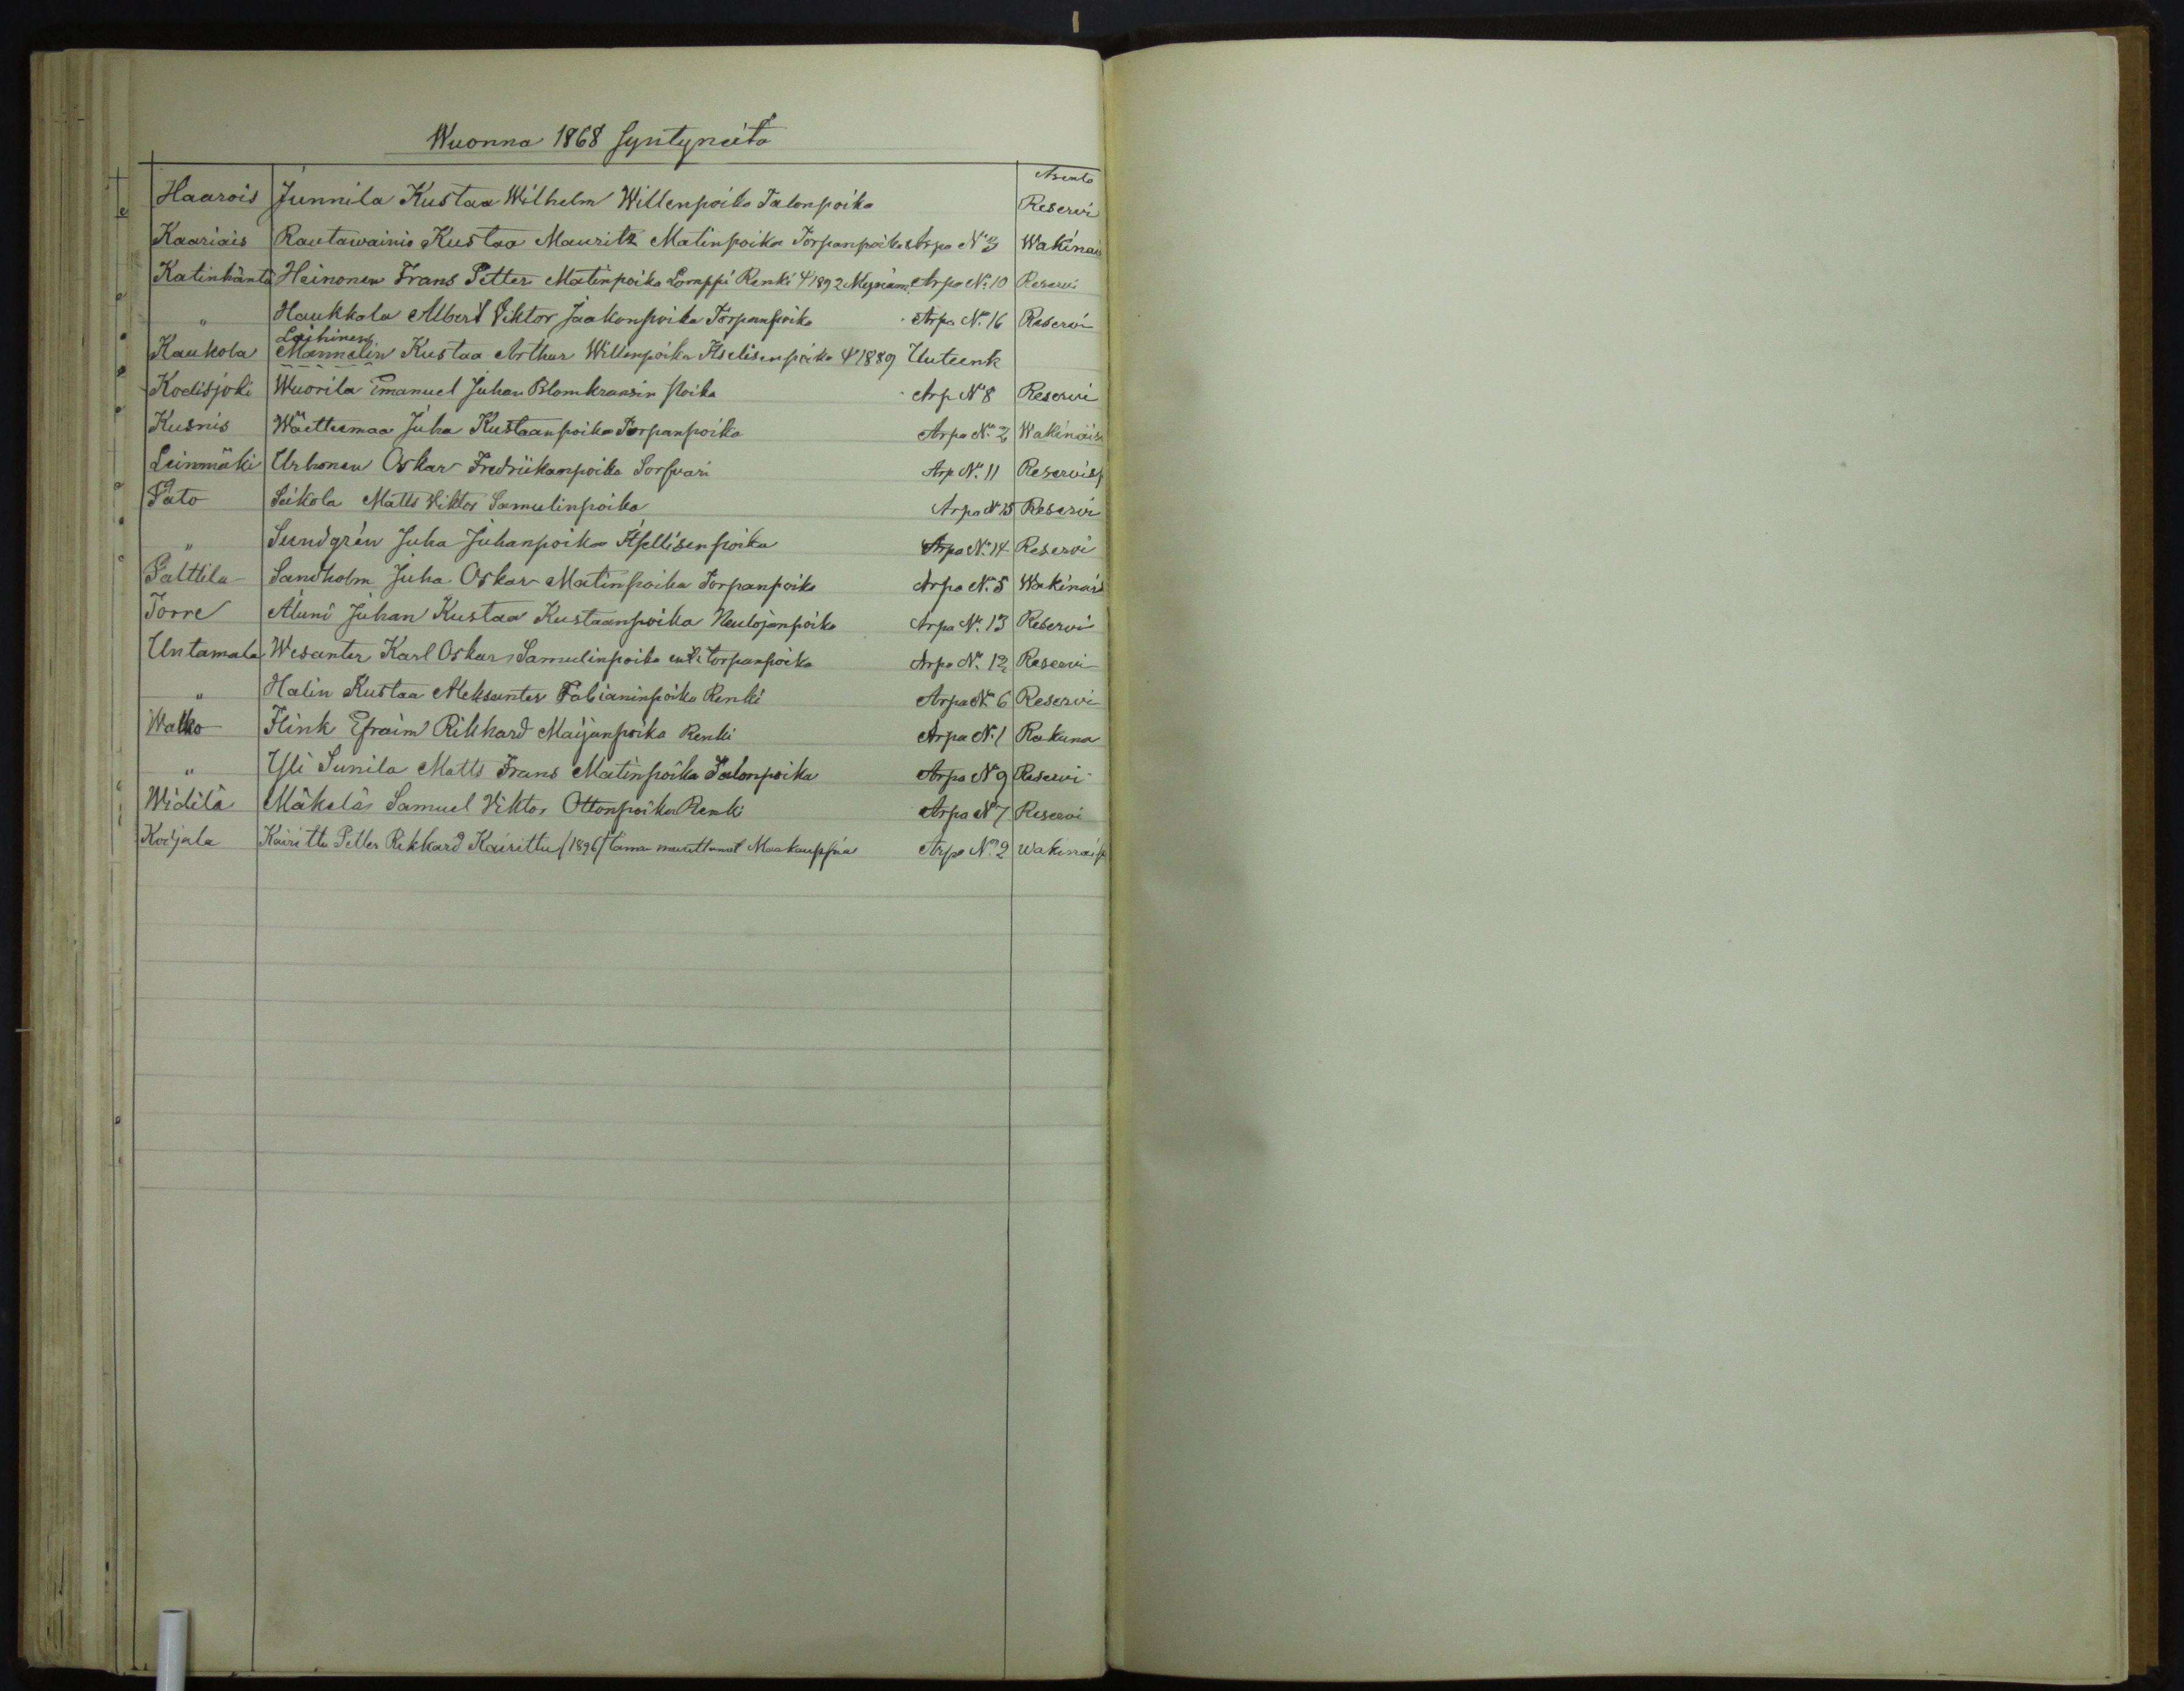 Wuonna 1868 Syntyneitä
Asento
Haarois Junnila Kustaa Wilhelm Willenpoika Talonpoika Reservi
Kaariais Rautawainio Kustaa Mauritz Matinpoika Torpanpoika Arpa No 3 Wakinais
Katinhäntä Heinonen Frans Petter Matinpoika Lamppi Renki 4/1892 Mynäm. Arpa No. 10 Reservi
" Haukkala Albert Viktor Jaakonpoika Torpanpoika Arpa No. 16 Reservi
Laihinen
Kaukola Mannelin Kustaa Arthur Willenpoika Itselisenpoika 4/1889 Uuteenk
Kodisjoki Wuorila Emanuel Juhan Blomkransin Poika Arp No 8 Reservi
Kusnis Wäetteemaa Juha Kustaanpoika Torpanpoika Arpa No. 2 Wakinäis
Leinmäki Urhonen Oskar Fredriikanpoika Sorfvari Arp No. 11 Reservis
Pato Siikola Matts Viktor Samulinpoika Arpa No 15 Reservi
" Sundgrén Juha Juhanpoika Itsellisenpoika Arpa No. 14 Reservi
Palttila Sandholm Juha Oskar Matinpoika Torpanpoika Arpa No. 5 Wakinais
Torre Aluni Juhan Kustaa Kustaanpoika Neulojanpoika Arpa No. 13 Reservi
Untamala Wesanter Karl Oskar Samulinpoika enti torpanpoika Arpa No. 12 Reservi
" Halin Kustaa Aleksanter Fabianinpoika Renki Arpa No 6 Reservi
Walko Flink Efraim Rikhard Maijanpoika Renki Arpa No. 1 Rakuna
" Yli Sunila Matts Frans Matinpoika Talonpoika Arpa No 9 Reservi
Widilä Mäkelä Samuel Viktor Ottonpoika Renki Arpa No 7 Reservi
Kodjala Kairittu Petter Rikhard Kairittu (1896) tänne muuttanut Maakauppias Arpa No. 2 Wakinais